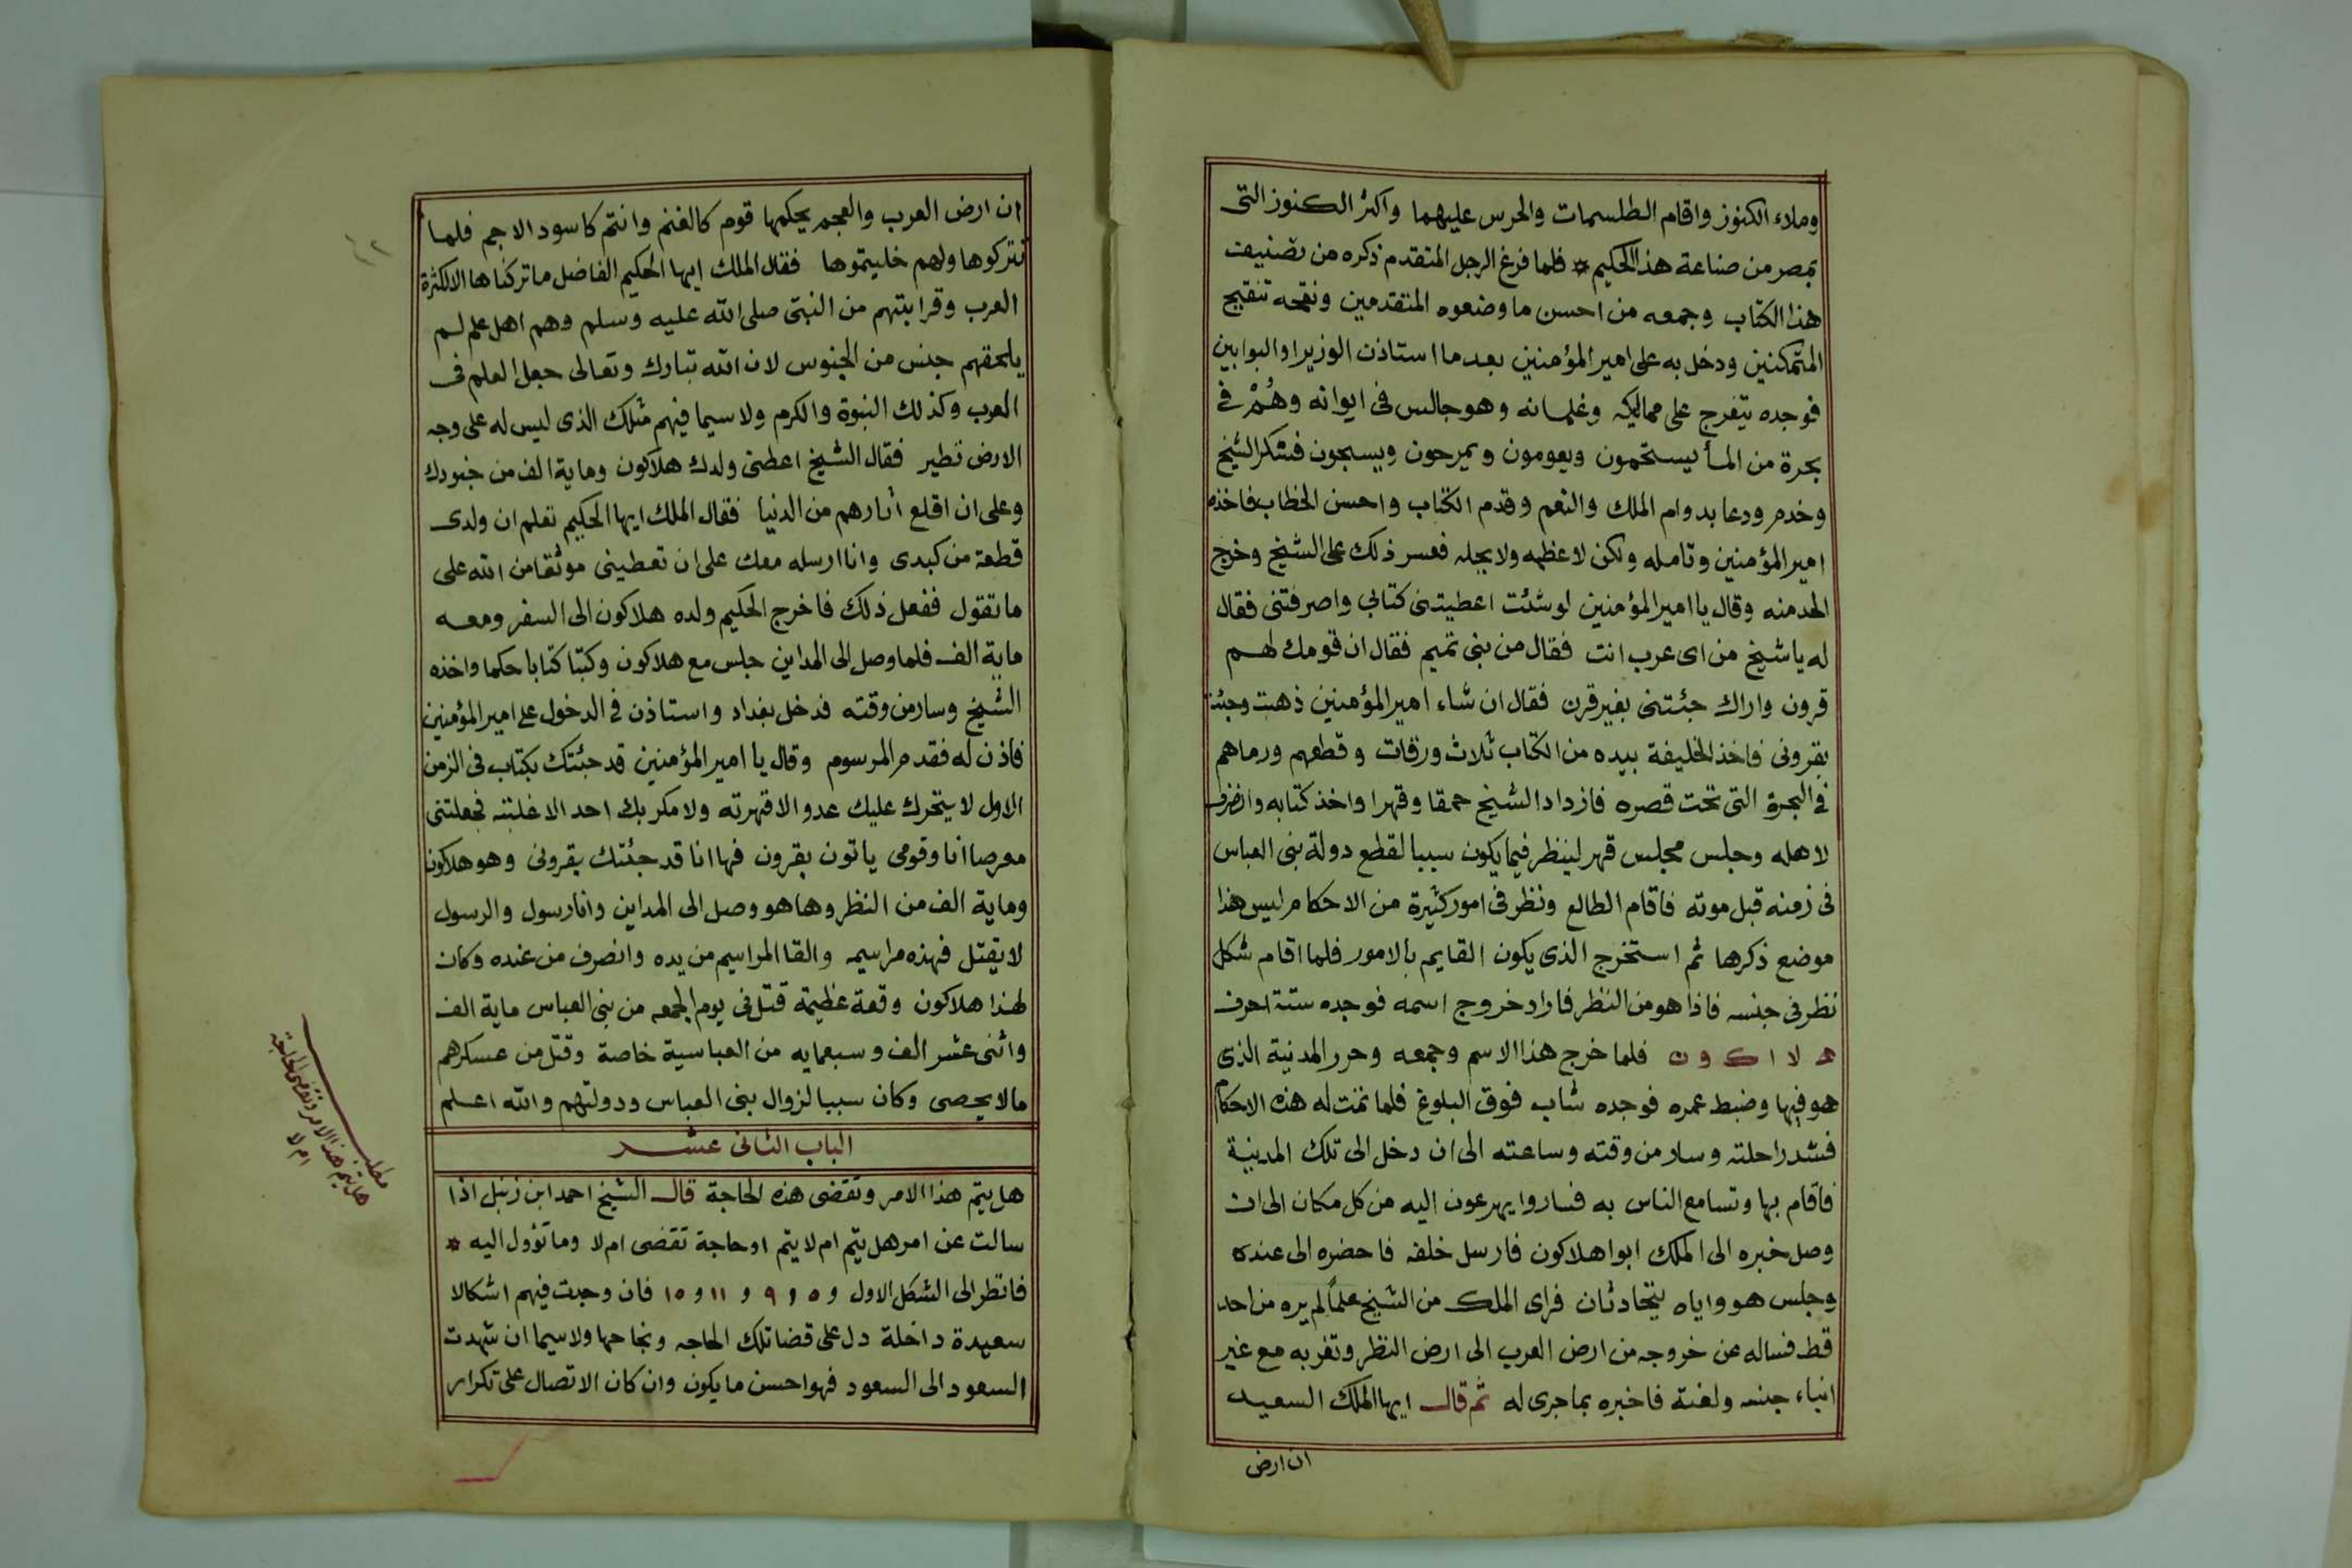 وملاء الكنوز واقام الطلسمات والحرس عليهما واكثر الكنوز التى
بمصر من صناعة هذا الحكيم * فلما فرغ الرجل المتقدم ذكره من تصنيف
هذا الكتاب وجمعه من احسن ما وضعوه المتقدمين ونقحه تنقيح
المتمكنين ودخل به على امير المؤمنين بعد ما استاذن الوزير او البوابين
فوجده يتفرج على مماليكه وغلمانه وهو جالس فى ايوانه وهُمْ فى
بحرة من الماء يستحمون ويعومون ويمرحون ويسبحون فشكر الشيخ
وخدم ودعا بدوام الملك والنعم وقدم الكتاب واحسن الخطاب فاخذه
امير المؤمنين وتامله ولكن لا عظمه ولا بجله فعسر ذلك على الشيخ وخرج
الحد منه وقال يا امير المؤمنين لو شئت اعطيتنى كتابى واصرفتنى فقال
له يا شيخ من اى عرب انت فقال من بنى تميم فقال ان قومك لهم
قرون واراك جئتنى بغير قرن فقال ان شاء امير المؤمنين ذهبت وجئت
بقرونى فاخذ الخليفة بيده من الكتاب ثلاث ورقات وقطعهم ورماهم
فى البحرة التى تحت قصره فازداد الشيخ حمقا وقهرا واخذ كتابه وانصرف
لاهله وجلس مجلس قهر لينظر فيما يكون سببا لقطع دولة بنى العباس
فى زمنه قبل موته فاقام الطالع ونظر فى امور كثيرة من الاحكام ليس هذا
موضع ذكرها ثم استخرج الذى يكون القايم بالامور فلما اقام شكل
نظر فى جنسه فاذا هو من النظر فاراد خروج اسمه فوجده ستة احرف
ه لا ا ك و ن فلما خرج هذا الاسم وجمعه وحرر المدنية الذى
هو فيها وضبط عمره فوجده شاب فوق البلوغ فلما تمت له هذه الاحكام
فشد راحلته وسار من وقته وساعته الى ان دخل الى تلك المدينة
فاقام بها وتسامع الناس به فساروا يهرعون اليه من كل مكان الى ان
وصل خبره الى الملك ابوا هلاكون فارسل خلفه فاحضره الى عنده
وجلس هو واياه يتحادثان فراى الملك من الشيخ علماً لم يره من احد
قط فساله عن خروجه من ارض العرب الى ارض النظر وتغربه مع غير
ابناء جنسه ولغته فاخبره بما جرى له ثم قال ايها الملك السعيد
ان ارض
ان ارض العرب والعجم يحكمها قوم كالغنم وانتم كاسود الاجم فلما
تتركوها ولهم خليتموها فقال الملك ايها الحكيم الفاضل ما تركناها الا لكثرة
العرب وقرابتهم من النبى صلى الله عليه وسلم وهم اهل علم لم
يلحقهم جنس من الجنوس لان الله تبارك وتعالى جعل العلم فى
العرب وكذلك النبوة والكرم ولا سيما فيهم مثلك الذى ليس له على وجه
الارض نظير فقال الشيخ اعطنى ولدك هلاكون وماية الف من جنودك
وعلى ان اقلع اثارهم من الدنيا فقال الملك ايها الحكيم تعلم ان ولدى
قطعة من كبدى وانا ارسله معك على ان تعطينى موثقا من الله على
ما تقول ففعل ذلك فاخرج الحكيم ولده هلاكون الى السفر ومعه
ماية الف فلما وصل الى المداين جلس مع هلاكون وكتبا كتابا حكما واخذه
الشيخ وسار من وقته فدخل بغداد واستاذن فى الدخول على امير المؤمنين
فاذن له فقدم المرسوم وقال يا امير المؤمنين قد جئتك بكتاب فى الزمن
الاول لا يتحرك عليك عدو الا قهرته ولا مكر بك احد الا غلبته فجعلتنى
معرصا انا وقومى ياتون بقرون فها انا قد جئتك بقرونى وهو هلاكون
وماية الف من النظر وها هو وصل الى المداين وانا رسول والرسول
لا يقتل فهذه مراسيمه والقا المراسيم من يده وانصرف من عنده وكان
لهذا هلاكون وقعة عظيمة قتل فى يوم الجمعه من بنى العباس ماية الف
واثنى عشر الف وسبعمايه من العباسية خاصة وقتل من عسكرهم
ما لا يحصى وكان سببا لزوال بنى العباس ودولتهم والله اعلم
الباب الثانى عشر
هل يتم هذا الامر وتقضى هذه الحاجة قال الشيخ احمد ابن زنبل اذا
سالت عن امر هل يتم ام لا يتم او حاجة تقضى ام لا وما تؤول اليه *
فانظر الى الشكل الاول و ٥ و ٩ و ١١ و ١٥ فان وجدت فيهم اشكالا
سعيدة داخلة دل على قضا تلك الحاجه ونجاحها ولا سيما ان شهدت
السعود الى السعود فهو احسن ما يكون وان كان الاتصال على تكرار
مطلب
هل يتم هذا الامر وتقضى الحاجة
ام لا
٤٢